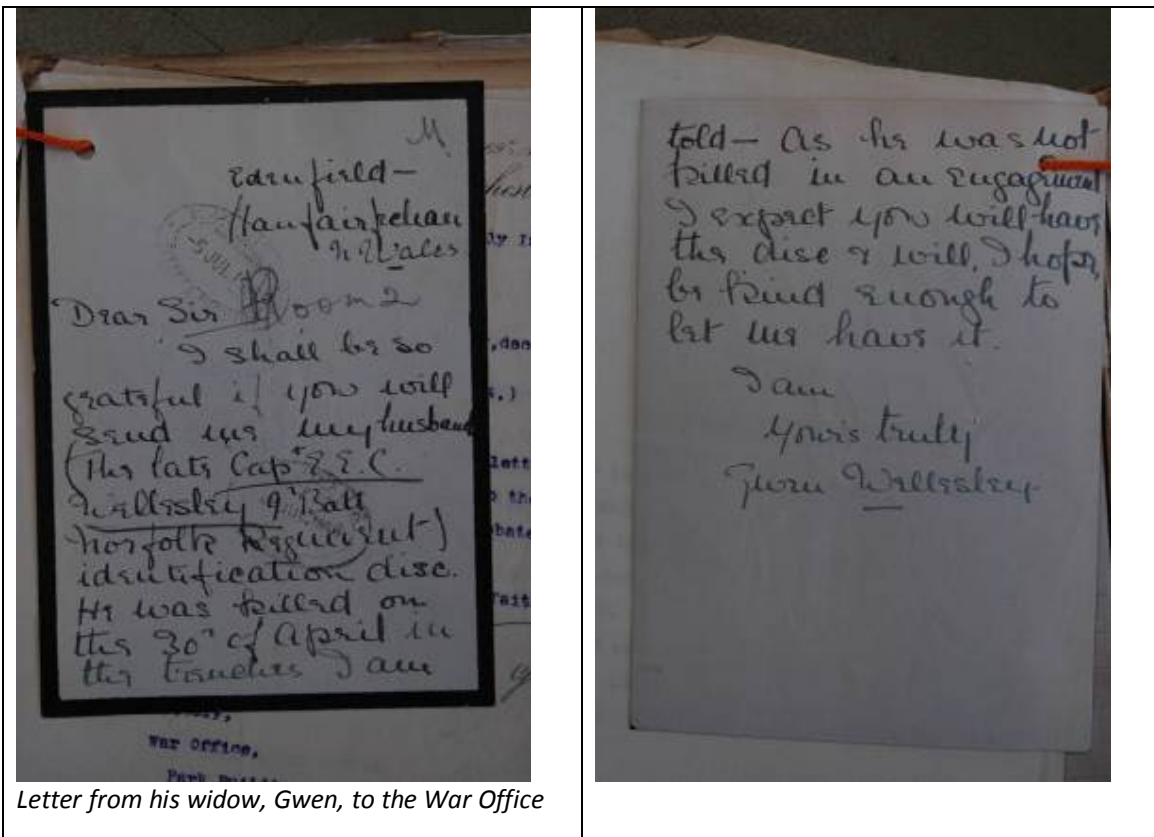 M.
Edenfield—
Llanfairfechan
N Wales
5 JUL
Room 2
Dear Sir
I shall be so
grateful if you will
send me my husband
(the late Capt E.E.C.
Wellesley 9' Batt
Norfolk Regiment)
identification disc.
He was killed on
the 30" of April in
the trenches I am
War Office,
told— As he was not
killed in an Engagement
I expect you will have
the disc & will, I hope,
be kind enough to
let me have it.
I am
Yours truly
Gwen Wellesley
Letter from his widow, Gwen, to the War Office